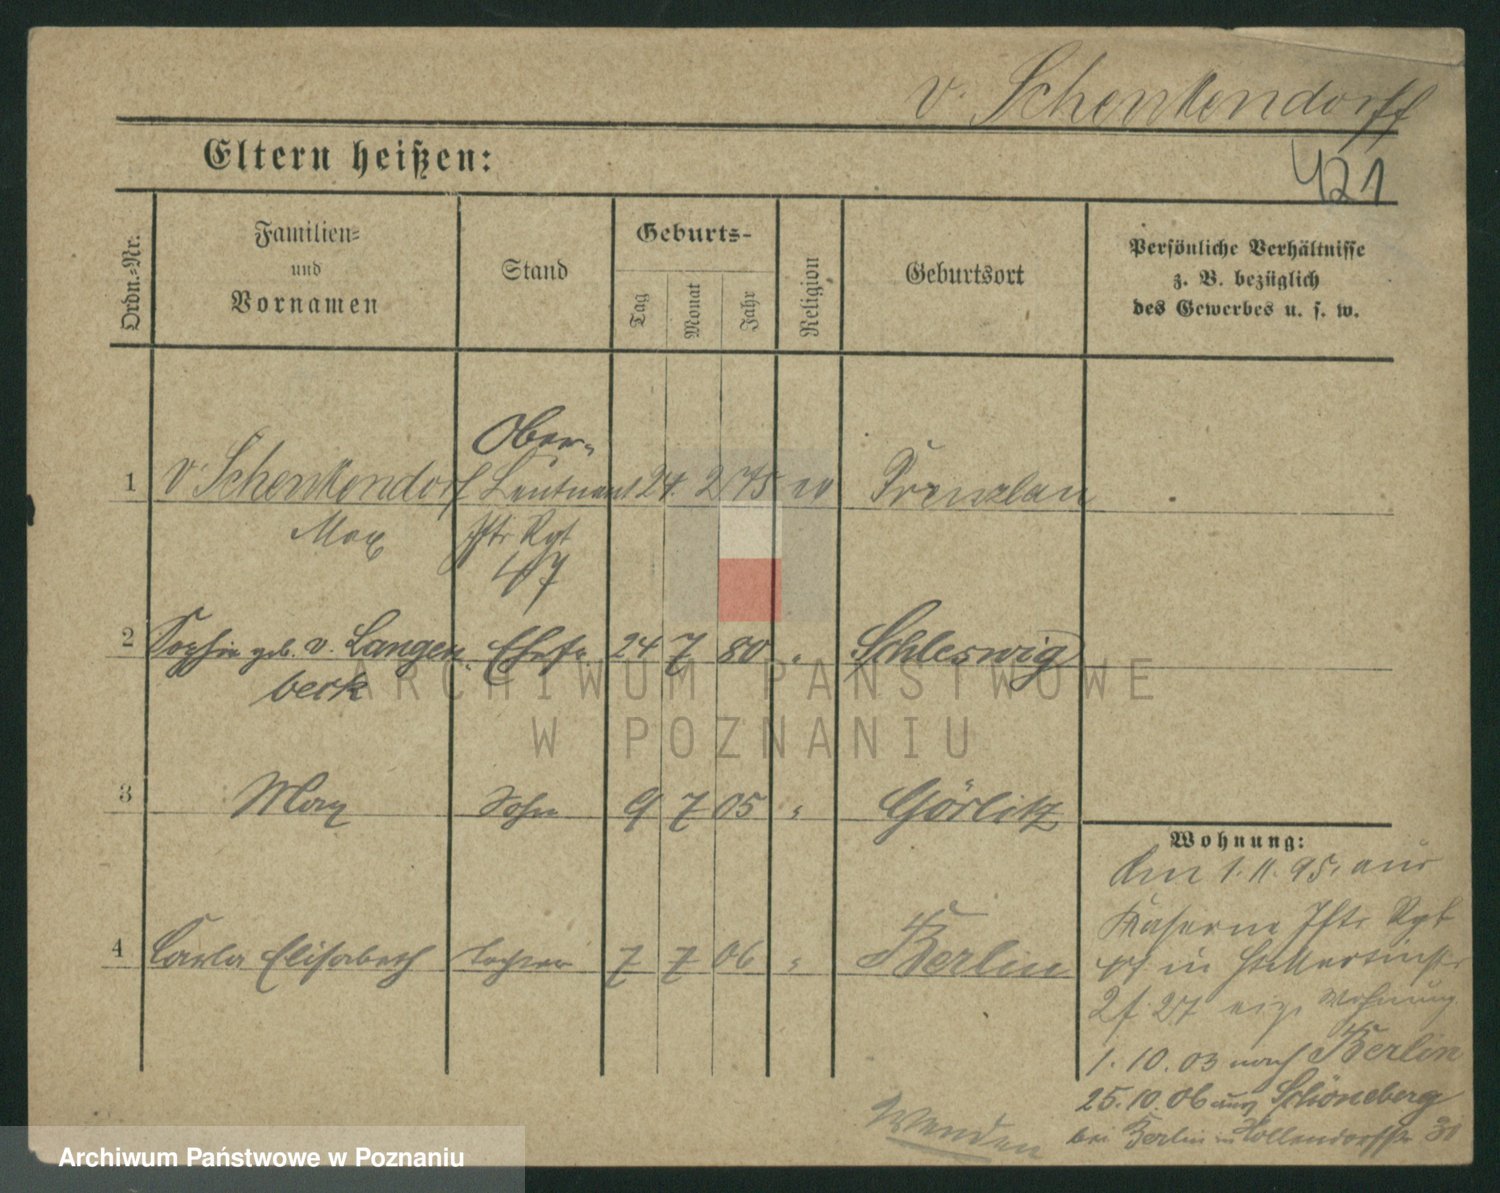 v. Schenkendorff
421
Eltern heißen:
Ordn.-Nr.
Familien-
und
Vornamen
Stand
Geburts-
Tag
Monat
Jahr
Religion
Geburtsort
Persönliche Verhältnisse
z. B. bezüglich
des Gewerbes u. s. w.
Ober-
1 v. Schenkendorf Leutnant 24. 2 75 ev Prenzlau
Max Iftr Rgt
47
2 Sophie geb. v. Langen Ehefr. 24 7 80 " Schleswig
beck
3 Max Sohn 9 7 05 " Görlitz
4 Carla Elisabeth Tochter 7 7 06 " Berlin
Wohnung:
Am 1.11.95. aus
Kaserne Iftr Rgt
in St Martinstr
27 eig. Wohnung
1.10.03 nach Berlin
25.10.06 aus Schöneberg
bei Berlin 31
Wenden
ARCHIWUM PAŃSTWOWE
W POZNANIU
Archiwum Państwowe w Poznaniu